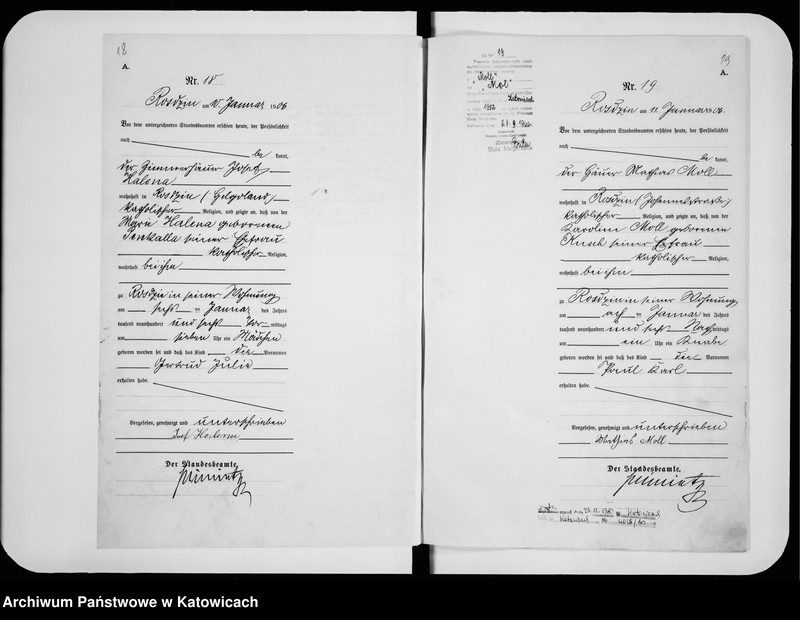 18
A.
Nr. 18
Rosdzin am 10. Januar 1906
Vor dem unterzeichneten Standesbeamten erschien heute, der Persönlichkeit
nach be kannt,
der Josef
Halena
wohnhaft in Rosdzin (Helgoland)
katholischer Religion, und zeigte an, daß von der
Halena geborenen
seiner Ehefrau
katholischer Religion,
wohnhaft bei ihm
zu Rosdzin in seiner Wohnung
am sechs ten Januar des Jahres
tausend neunhundert und sechs Vor mittags
um sieben Uhr ein Mädchen
geboren worden sei und daß das Kind die Vornamen
Gertrud Julie
erhalten habe.
Vorgelesen, genehmigt und unterschrieben
Josef
Der Standesbeamte.
19
A.
Nr. 19
Rosdzin am 11. Januar 1906.
Vor dem unterzeichneten Standesbeamten erschien heute, der Persönlichkeit
nach be kannt,
der Häuer Mathias Moll
wohnhaft in Rosdzin (Johannesstrasse)
katholischer Religion, und zeigte an, daß von der
Karoline Moll geborenen
seiner Ehefrau
katholischer Religion,
wohnhaft bei ihm
zu Rosdzin in seiner Wohnung
am acht ten Januar des Jahres
tausend neunhundert und sechs Nach mittags
um ein Uhr ein Knabe
geboren worden sei und daß das Kind die Vornamen
Paul Karl
erhalten habe.
Vorgelesen, genehmigt und unterschrieben
Mathias Moll
Der Standesbeamte.
19
"Moll"
"Mol"
Archiwum Państwowe w Katowicach